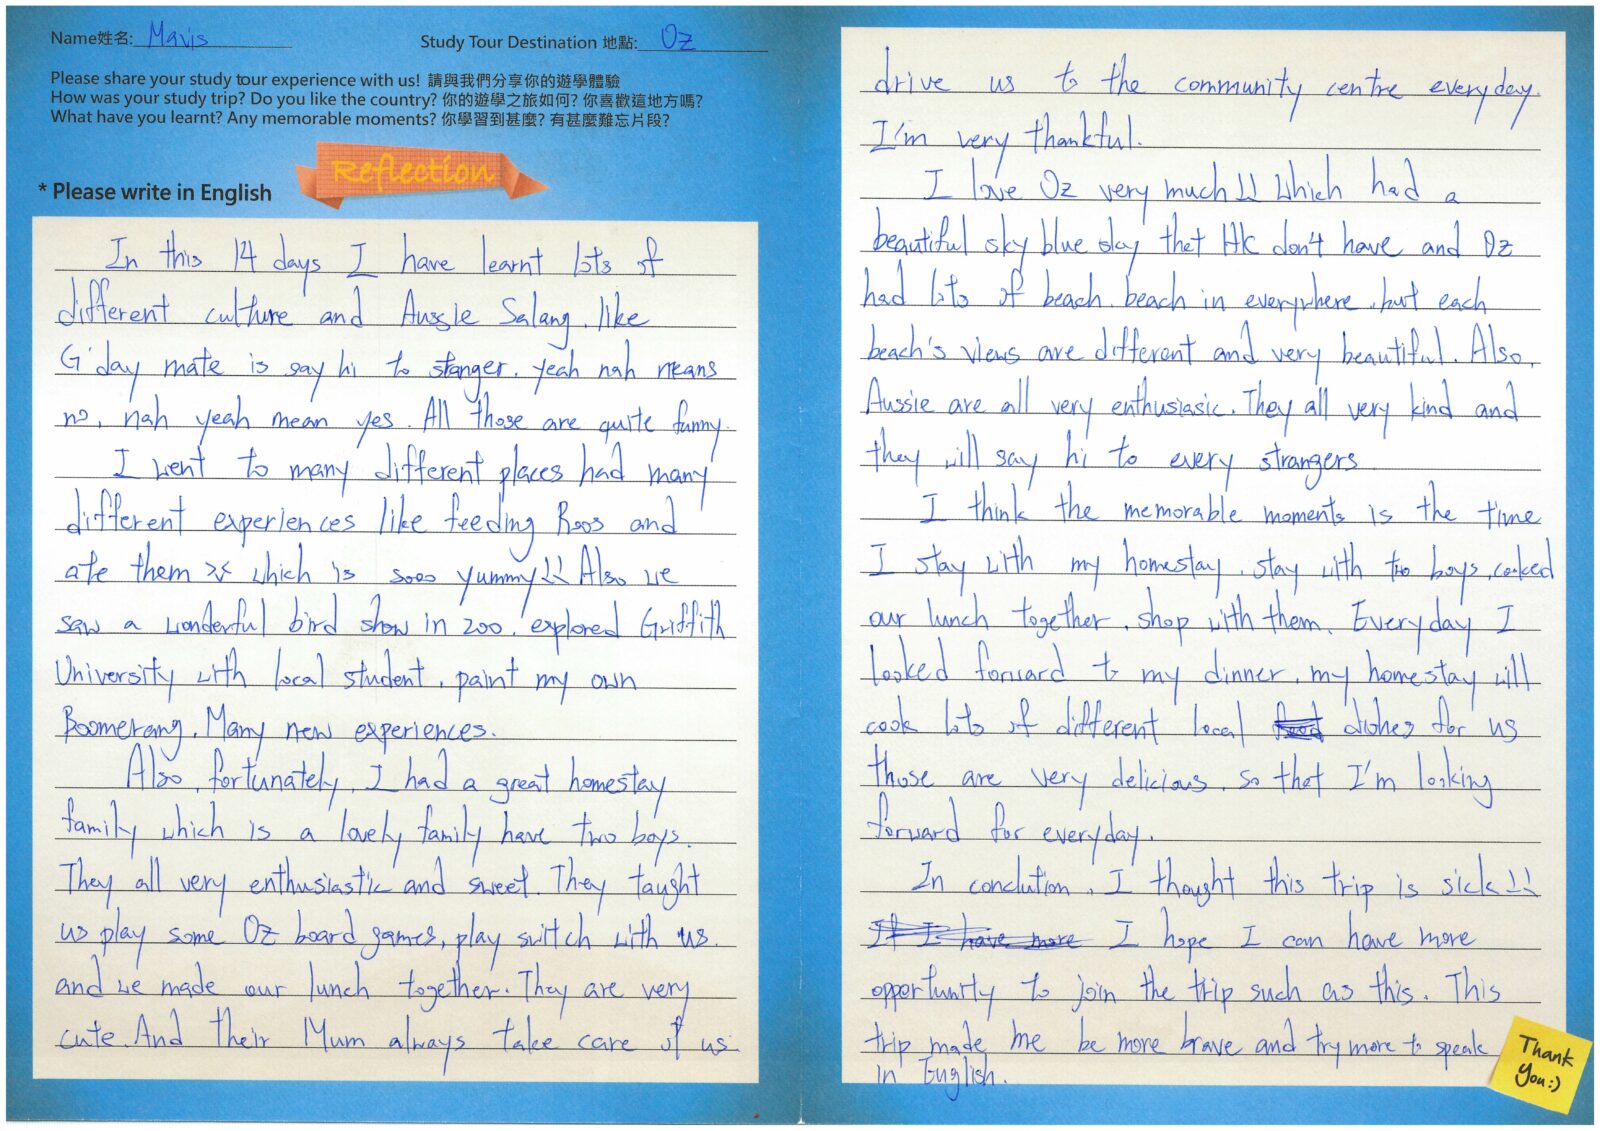 Name姓名: Mavis
Study Tour Destination 地點: Oz
Please share your study tour experience with us! 請與我們分享你的遊學體驗
How was your study trip? Do you like the country? 你的遊學之旅如何? 你喜歡這地方嗎?
What have you learnt? Any memorable moments? 你學習到甚麼? 有甚麼難忘片段?
Reflection
* Please write in English
In this 14 days I have learnt lots of
different culture and Aussie Salang. like
G'day mate is say hi to stanger. yeah nah means
no, nah yeah mean yes. All those are quite funny.
I went to many different places had many
different experiences like feeding Roos and
ate them which is sooo yummy!! Also we
saw a wonderful bird show in zoo. explored Griffith
University with local student. paint my own
Boomerang. Many new experiences.
Also, fortunately, I had a great homestay
family which is a lovely family have two boys.
They all very enthusiastic and sweet. They taught
us play some Oz board games, play switch with us.
and we made our lunch together. They are very
cute. And their Mum always take care of us
drive us to the community centre everyday.
I'm very thankful.
I love Oz very much!! Which had a
beautiful sky blue sky that HK don't have and Oz
had lots of beach. beach in everywhere. but each
beach's views are different and very beautiful. Also,
Aussie are all very enthusiasic. They all very kind and
they will say hi to every strangers
I think the memorable moments is the time
I stay with my homestay. stay with two boys. cooked
our lunch together. shop with them. Everyday I
looked forward to my dinner. my homestay will
cook lots of different local dishes for us
those are very delicious. so that I'm looking
forward for everyday.
In conclution, I thought this trip is sick!!
It I have more I hope I can have more
opportunity to join the trip such as this. This
trip made me be more brave and try more to speak
in English.
Thank
You:)